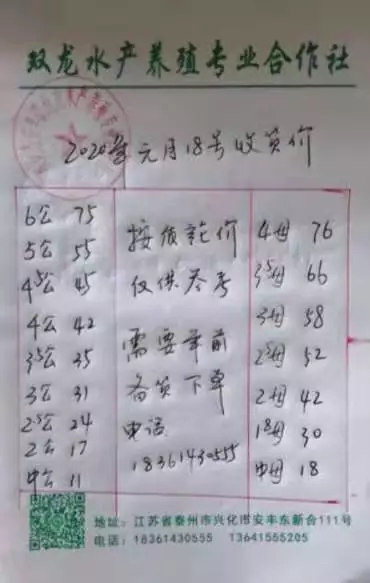 双龙水产养殖专业合作社
2020年元月18号收货价
6公 75
5公 55
4⁵公 45
4公 42
3⁵公 35
3公 31
2⁵公 24
2公 17
中公 11
按质论价
仅供参考
需要年前
备货下单
电话
18361430555
4母 76
3⁵母 66
3母 58
2⁵母 52
2母 42
1⁸母 30
中母 18
地址：江苏省泰州市兴化市安丰东新合111号
电话：18361430555 13641555205